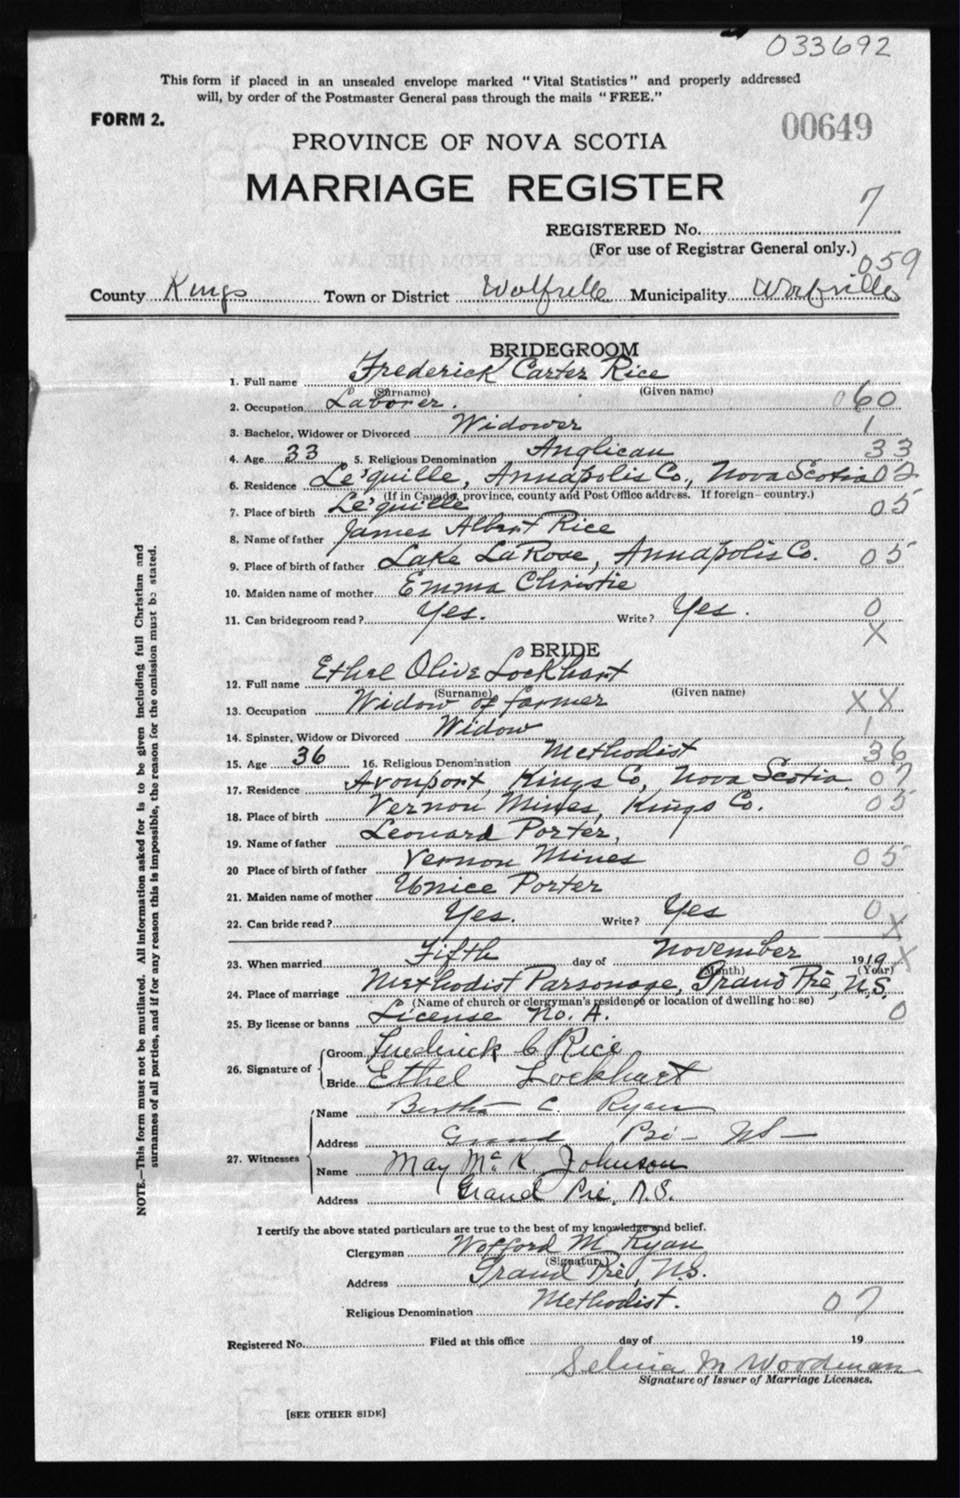 033692
This form if placed in an unsealed envelope marked "Vital Statistics" and properly addressed
will, by order of the Postmaster General pass through the mails "FREE."
FORM 2.
00649
PROVINCE OF NOVA SCOTIA
MARRIAGE REGISTER
REGISTERED No. 7
(For use of Registrar General only.)
059
County Kings Town or District Wolfville Municipality Wolfville
BRIDEGROOM
1. Full name Frederick Carter Rice
(Surname) (Given name)
2. Occupation Laborer. 060
3. Bachelor, Widower or Divorced Widower 1
4. Age 33 5. Religious Denomination Anglican 33
6. Residence Le'quille, Annapolis Co., Nova Scotia 02
(If in Canada, province, county and Post Office address. If foreign - country.)
7. Place of birth Le'quille 05
8. Name of father James Albert Rice
9. Place of birth of father Lake LaRose, Annapolis Co. 05
10. Maiden name of mother Emma Christie
11. Can bridegroom read? Yes. Write? Yes. 0
X
BRIDE
12. Full name Ethel Olive Lockhart
(Surname) (Given name)
13. Occupation Widow of farmer XX
14. Spinster, Widow or Divorced Widow 1
15. Age 36 16. Religious Denomination Methodist 36
17. Residence Avonport, Kings Co, Nova Scotia. 07
18. Place of birth Vernon Mines, Kings Co. 05
19. Name of father Leonard Porter,
20 Place of birth of father Vernon Mines 05
21. Maiden name of mother Unice Porter
22. Can bride read? Yes. Write? Yes 0
X
23. When married Fifth day of November 1919 X
(Month) (Year)
24. Place of marriage Methodist Parsonage, Grand Pré, N.S.
(Name of church or clergyman's residence or location of dwelling house)
25. By license or banns License No. A. 0
26. Signature of
Groom Frederick C Rice
Bride Ethel Lockhart
27. Witnesses
Name Bertha C. Ryan
Address Grand Pré - NS -
Name May McK Johnson
Address Grand Pré, N.S.
I certify the above stated particulars are true to the best of my knowledge and belief.
Clergyman Wofford M Ryan
(Signature)
Address Grand Pré, N.S.
Religious Denomination Methodist. 07
Registered No. Filed at this office day of 19
Selina M Woodman
Signature of Issuer of Marriage Licenses.
[SEE OTHER SIDE]
NOTE.—This form must not be mutilated. All information asked for is to be given including full Christian and
surnames of all parties, and if for any reason this is impossible, the reason for the omission must be stated.